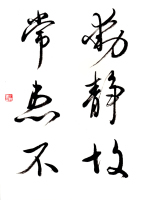 靜故
常患不